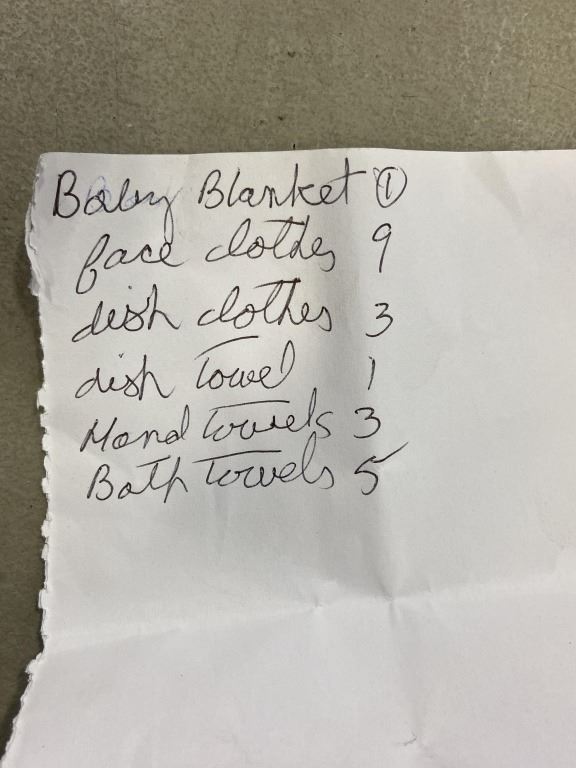 Baby Blanket ①
face clothes 9
dish clothes 3
dish Towel 1
Hand Towels 3
Bath Towels 5